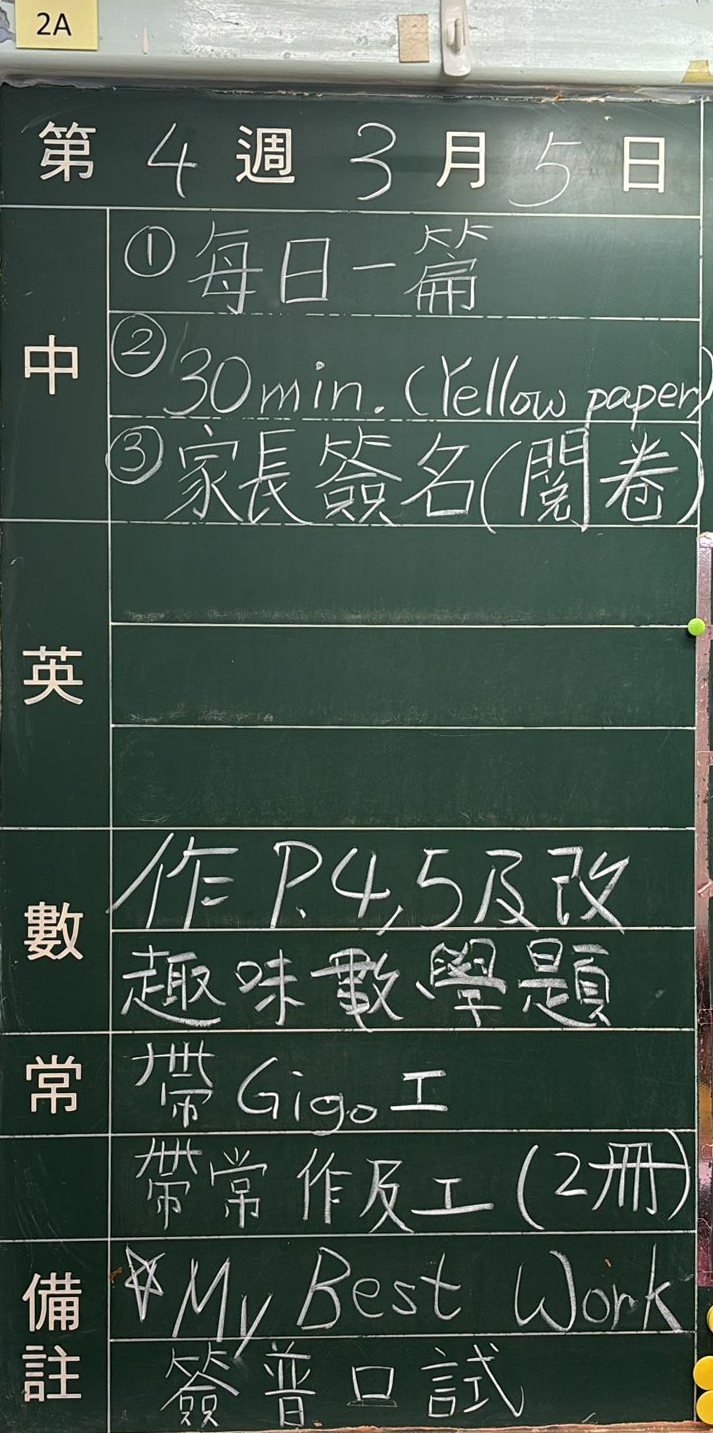 2A
第 4 週 3 月 5 日
中
① 每日一篇
② 30min. (Yellow paper)
③ 家長簽名(閱卷)
英
數
作 P.4,5及改
趣味數學題
常
帶 Gigo 工
帶常作及工(2冊)
備註
☆My Best Work
簽普口試